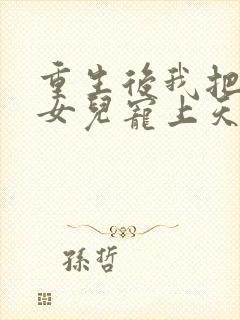 重生後我把
女兒寵上天
孫哲